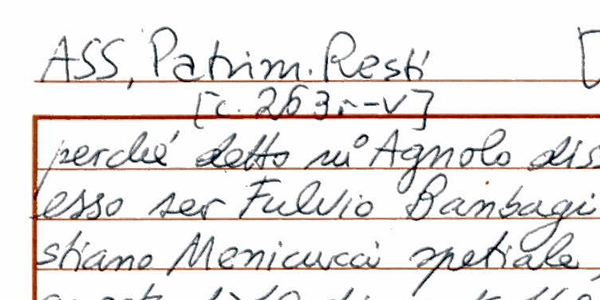 ASS, Patrim. Resti [
[c. 263r-v]
perché detto mº Agnolo dis
esso ser Fulvio Bambagi
stiano Menicucci spetiale,